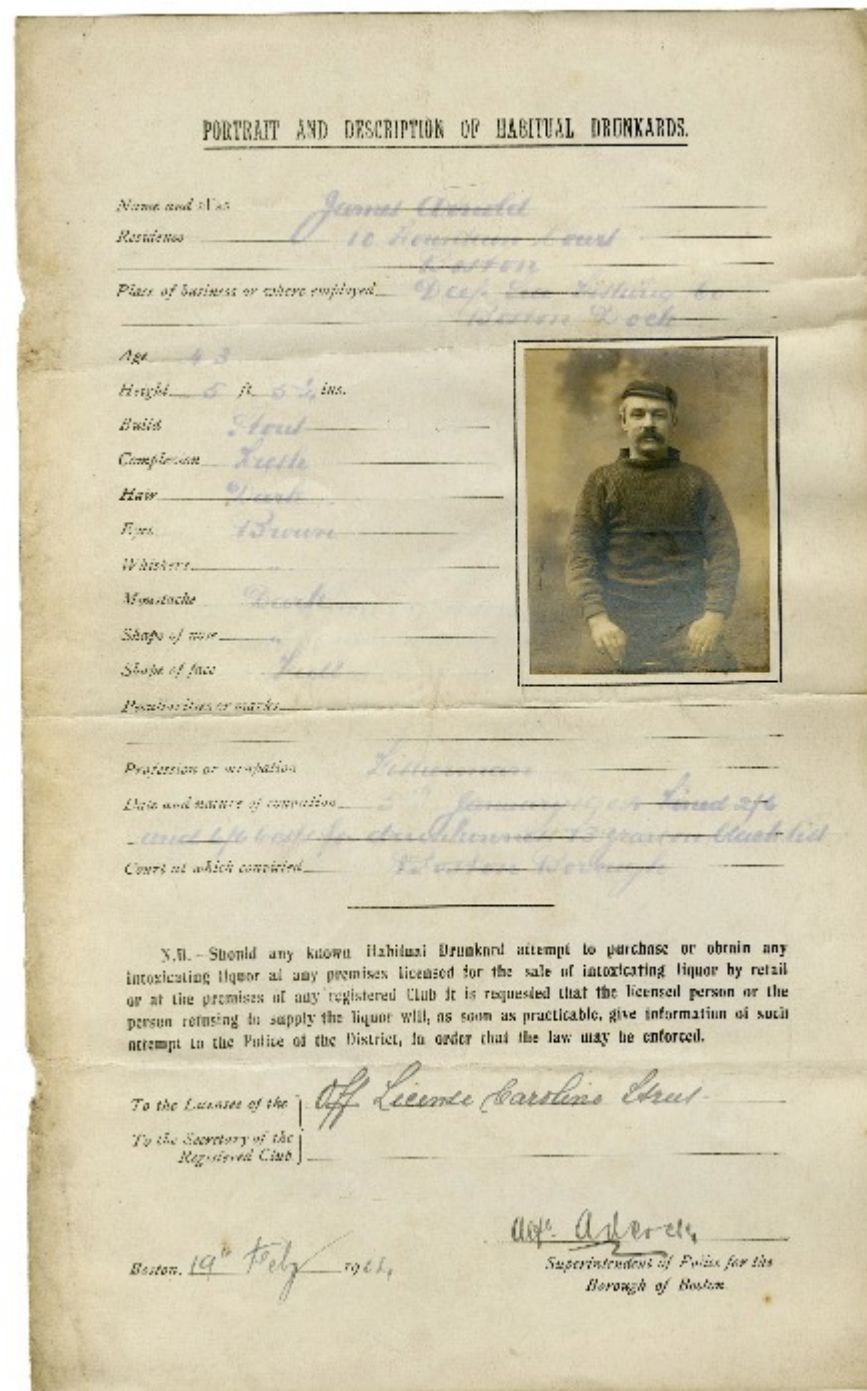 PORTRAIT AND DESCRIPTION OF HABITUAL DRUNKARDS.
Name and alias James Arnold
Residence 10 Fountain Court
Boston
Place of business or where employed Deep Sea Fishing Co
Boston Dock
Age 43
Height 5 ft 5½ ins.
Build Stout
Complexion Fresh
Hair Dark
Eyes Brown
Whiskers "
Moustache Dark
Shape of nose "
Shape of face Full
Peculiarities or marks
Profession or occupation Fisherman
Date and nature of conviction January 1904 Fined 2/6
and for drunkenness
Court at which convicted Boston Borough
N.B.—Should any known Habitual Drunkard attempt to purchase or obtain any
intoxicating liquor at any premises licensed for the sale of intoxicating liquor by retail
or at the premises of any registered Club it is requested that the licensed person or the
person refusing to supply the liquor will, as soon as practicable, give information of such
attempt to the Police of the District, in order that the law may be enforced.
To the Licensee of the Off License Caroline Street
To the Secretary of the
Registered Club
Adcock
Boston, 19th Feby 190
Superintendent of Police for the
Borough of Boston.